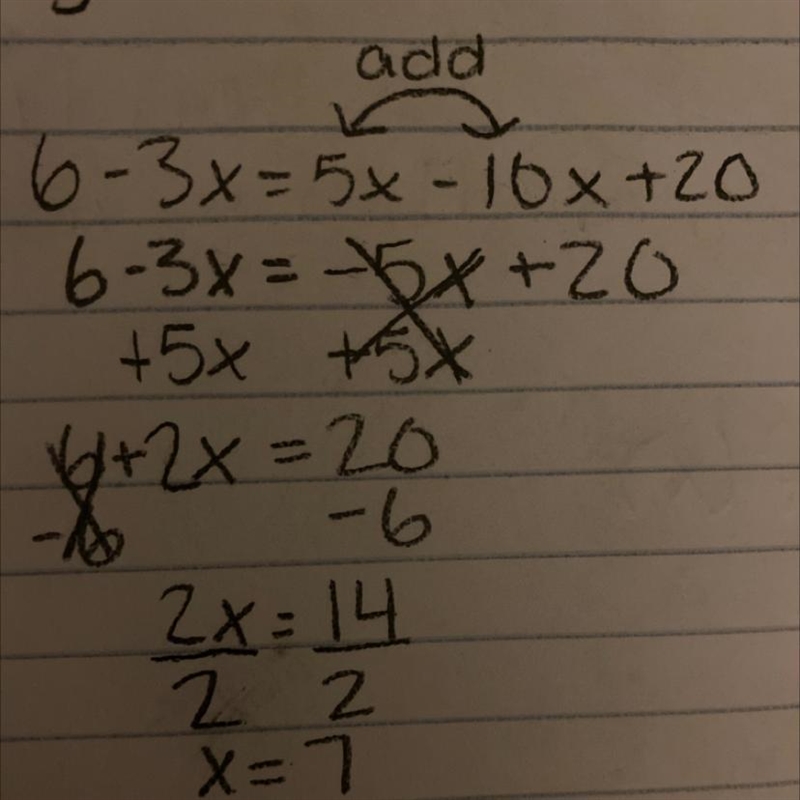 add
6-3x=5x-10x+20
6-3x=-5x+20
+5x +5x
6+2x=20
-6 -6
2x=14
2 2
x=7